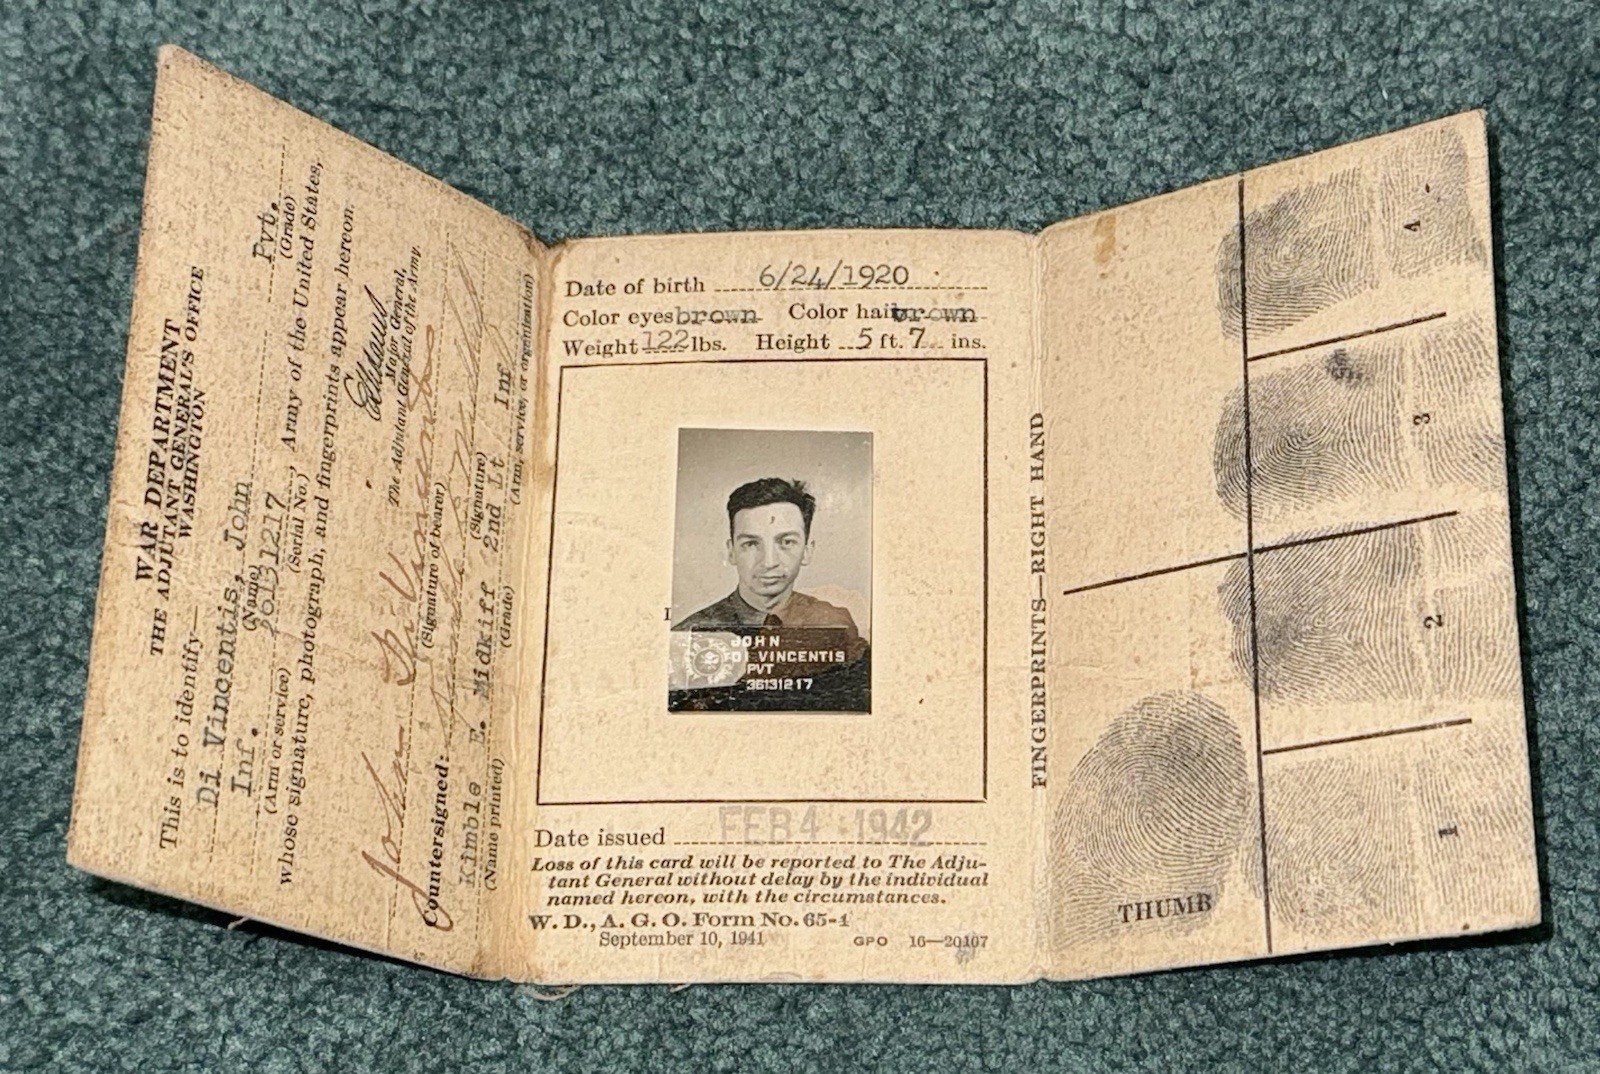 WAR DEPARTMENT
THE ADJUTANT GENERAL'S OFFICE
WASHINGTON
This is to identify—
Di Vincentis, John Pvt.
(Name) (Grade)
Inf. 36131217, Army of the United States,
(Arm or service) (Serial No.)
whose signature, photograph, and fingerprints appear hereon.
Major General,
The Adjutant General of the Army.
John Di Vincentis
(Signature of bearer)
Countersigned:
(Signature)
Kimble E. Midkiff 2nd Lt Inf
(Name printed) (Grade) (Arm, service, or organization)
Date of birth 6/24/1920
Color eyes brown Color hair brown
Weight 122 lbs. Height 5 ft. 7 ins.
JOHN
DI VINCENTIS
PVT
36131217
Date issued FEB 4 1942
Loss of this card will be reported to The Adju-
tant General without delay by the individual
named hereon, with the circumstances.
W. D., A. G. O. Form No. 65-4
September 10, 1941 GPO 16—20107
FINGERPRINTS—RIGHT HAND
4
3
2
1
THUMB